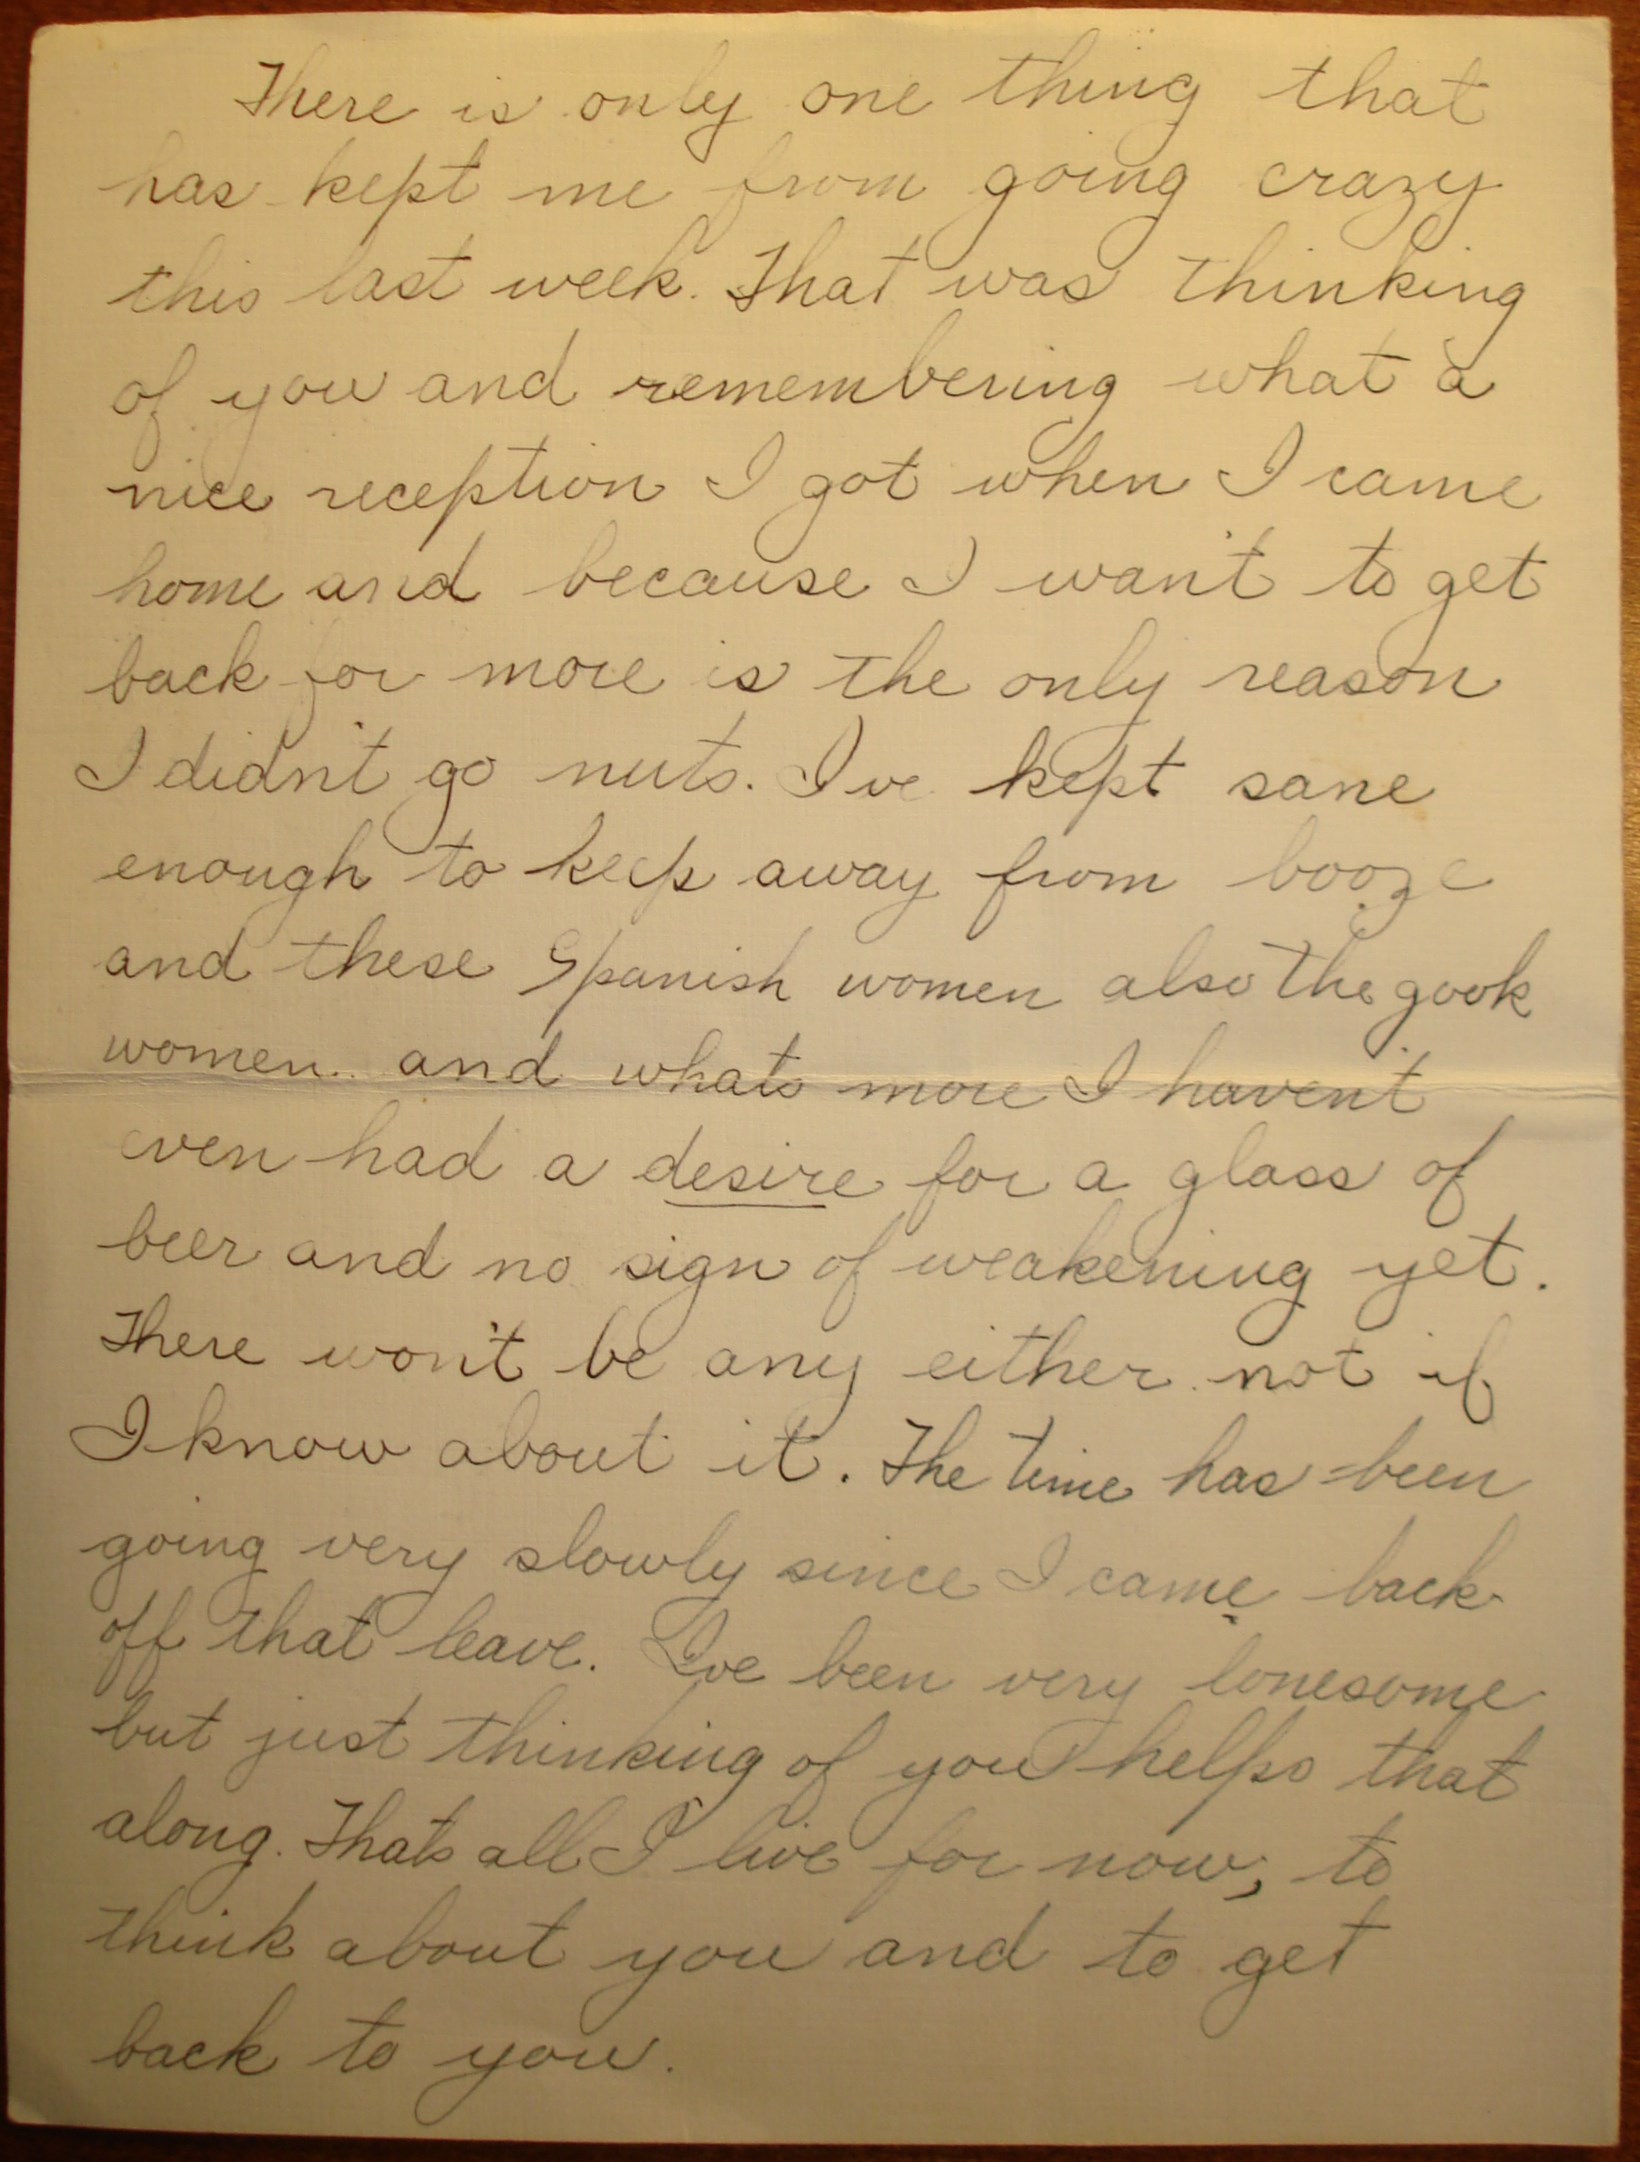 There is only one thing that
has kept me from going crazy
this last week. That was thinking
of you and remembering what a
nice reception I got when I came
home and because I want to get
back for more is the only reason
I didn't go nuts. I've kept sane
enough to keep away from booze
and these Spanish women also the gook
women. and whats more I haven't
even had a desire for a glass of
beer and no sign of weakening yet.
There won't be any either not if
I know about it. The time has been
going very slowly since I came back
off that leave. I've been very lonesome
but just thinking of you helps that
along. Thats all I live for now, to
think about you and to get
back to you.